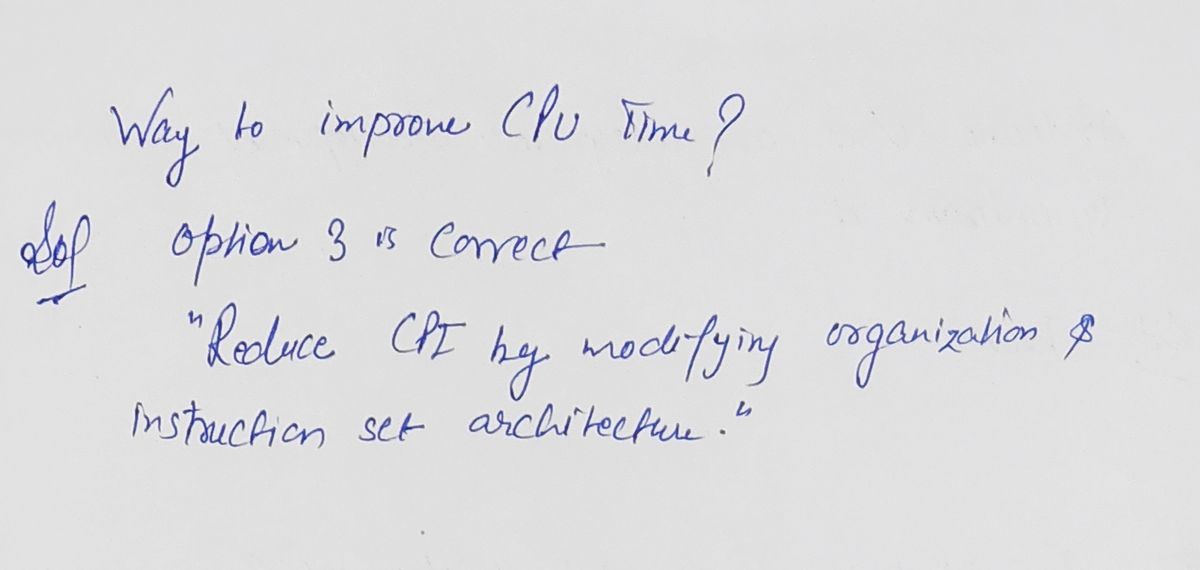 Way to improve CPU Time?
Sol option 3 is Correct
"Reduce CPI by modifying organization &
instruction set architecture."